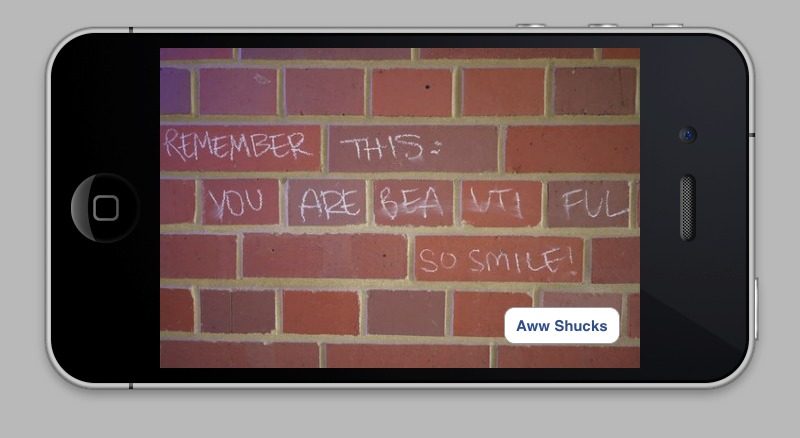 REMEMBER THIS:
YOU ARE BEA UTI FUL
SO SMILE!
Aww Shucks